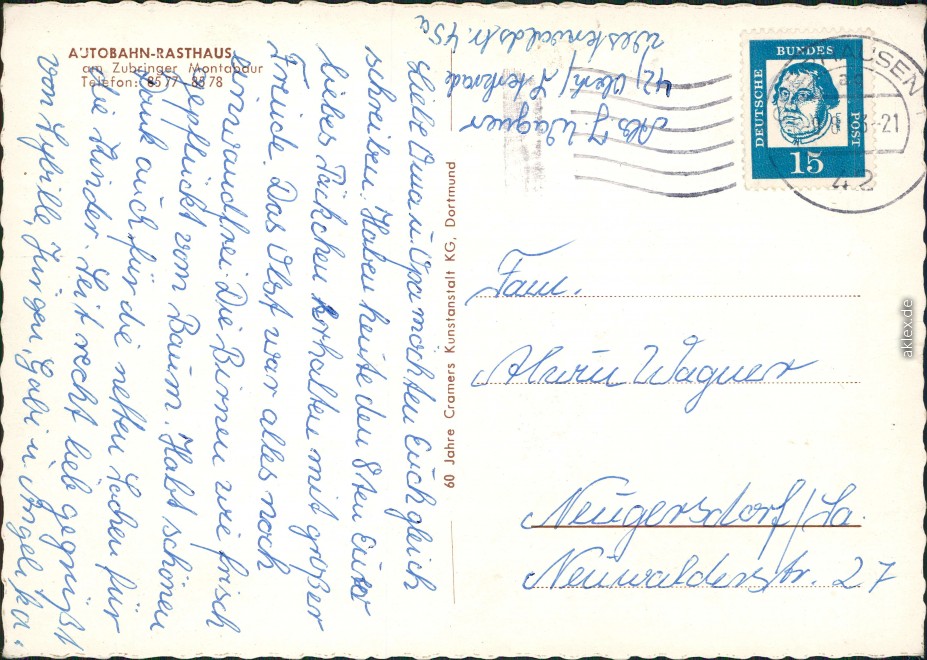 AUTOBAHN-RASTHAUS
am Zubringer Montabaur
Telefon: 8577 8578
Liebe Oma u. Opa möchten Euch gleich
schreiben. Haben heute den 8ten Euer
liebes Päckchen erhalten mit großer
Freude. Das Obst war alles noch
einwandfrei. Die Birnen wie frisch
gepflückt vom Baum. Habt schönen
Dank auch für die netten Sachen für
die Kinder. Seit recht lieb gegrüßt
von Sybille, Jürgen, Gabi u. Angelika.
60 Jahre Cramers Kunstanstalt KG, Dortmund
Abs J Wagner
42) Oberh / Sterkrade
Westerwaldstr. 45a
DEUTSCHE
BUNDES
POST
15
HAUSEN
-21
42
Fam.
Alwin Wagner
Neugersdorf / Sa.
Neuwalderstr. 27
aklex.de